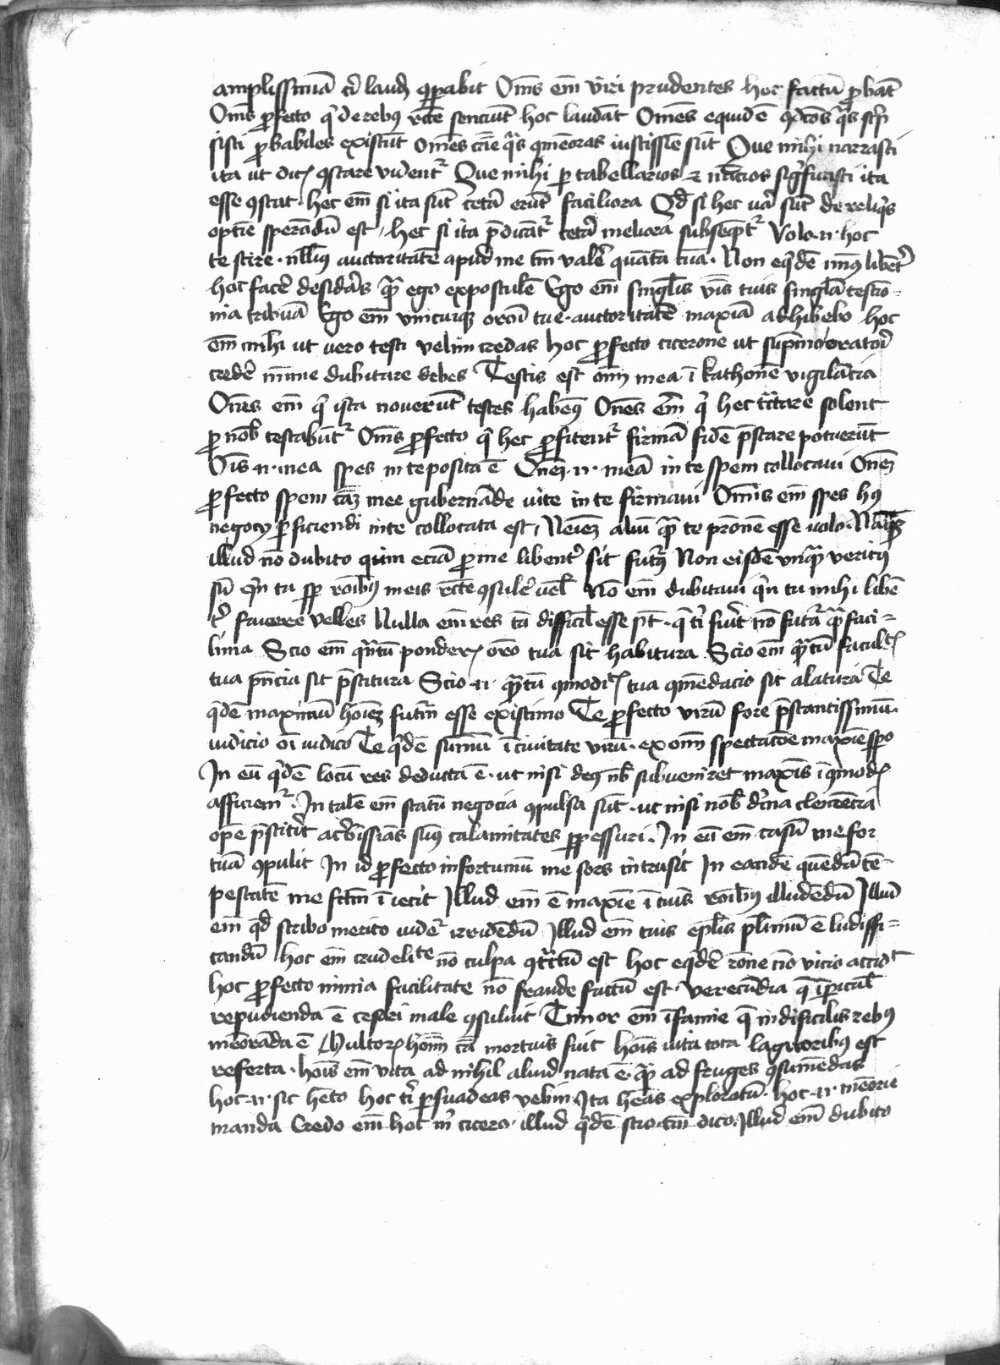 amplissimā tibi laudē cōparabit Oms em̄ viri prudentes hoc factū probāt
Oms profecto qui de rebus recte senciunt hoc laudāt Omēs equidē quos scrip
sisti probabiles existūt Omēs quas memoras iustissie sūt Que mihi narrasti
ita ut dicis constare videntr Que mihi p tabellarios et nūctios sigficasti ita
esse cōstat. hec em̄ si ita sūt cetā erūt faciliora Qd si hec va sūt de reliqs
optie sperādū est, hec si ita pdicātr cetā meliora subseqētr Volo .n. hoc
te scire. nullius auctoritatē apud me tm̄ valē quātā tuā. Non eqdē minus libetr
hoc facē desidās qua ego expostulē Ego em̄ singlis vbis tuis singlā testio=
nia tribuā Ego em̄ vnicuiq oroni tue auctoritatē maxiā adhibebo hoc
em̄ mihi ut vero testi velim credas hoc profecto cicerone ut supmo oratori
credē mime dubitare debes Testis est om̄ mea ī kathone vigilācia
Omēs em̄ q ista noverūt testes habeo Omēs em̄ q hec tctare solent
p nob testabūtr Oms profecto q hec profitentr firmā fidē pstare potuerūt
Ois .n. mea spes in te posita ē Omēz .n. meā in te spem collocavi Omēz
profecto spem mee gubernāde vite in te firmavi Omis em̄ spes hs
negocy pficiendi in te collocata est, Nemēz aliū qua te pronē esse volo. Naqs
illud nō dubito quin eciā p me libentr sit futz Non eisdē vnqua veritus
sū qn tu sp roibus meis recte cōsulē vel Nō em̄ dubitavi qn tu mihi libē
tr favere velles Nulla em̄ res tā difficil esse pt. q ti fuit nō futā qua faci=
lima Scio em̄ qntū ponder oro tua sit habitura Scio em̄ qntū facult
tua pncia sit pstitura Scio .n. qntū cōmodi tua cōmēdacio sit alaturā Te
qdē maximū hoiez futm̄ esse existimo Te profecto virū fore pstantissimū
iudicio oi iudico Te qdē sumū ī civitate virū. ex om̄ spectacōe maxie spo
In eū qdē locū res deducta ē. ut nisi deq nb subveniret maxis icōmod
afficiemr. In talē em̄ statū negocia cōpulsa sūt. ut nisi nob divina clemēcia
opē pstitit acbissias sus calamitates ppessuri. In eū em̄ casū me for
tuā cōpulit In id profecto infortuniū me sors intrusit In eādē quēdā tē=
pestatē me fctm̄ iiecit Illud em̄ ē maxie ī tuis roibus illudēdū Illud
em̄ qd scribo merito videtr irridēdū Illud em̄ tuis eplis plimū ē ludiffi=
candū hoc em̄ crudelite nō culpa cōtctū est hoc eqdē rōne nō vicio accidt
hoc profecto nimia facilitate nō fraude factū est. verecūdia q ī picul
repudienda ē cesari male cōsuluit Timor em̄ īfamie q in dificilis rebus
memorāda ē Multor hom̄ cā mortuis fuit hois vita tota lagroribus est
referta. hois em̄ vita ad nihil aliud nata ē. qua ad fruges cōsumēdas
hoc .n. sic hēto hoc ti psuadeas velim. Ita heas exploratū. hoc .n. memorie
manda Credo em̄ hoc mi cicero. illud qdē scio. tm̄ dico. Illud em̄ dubito